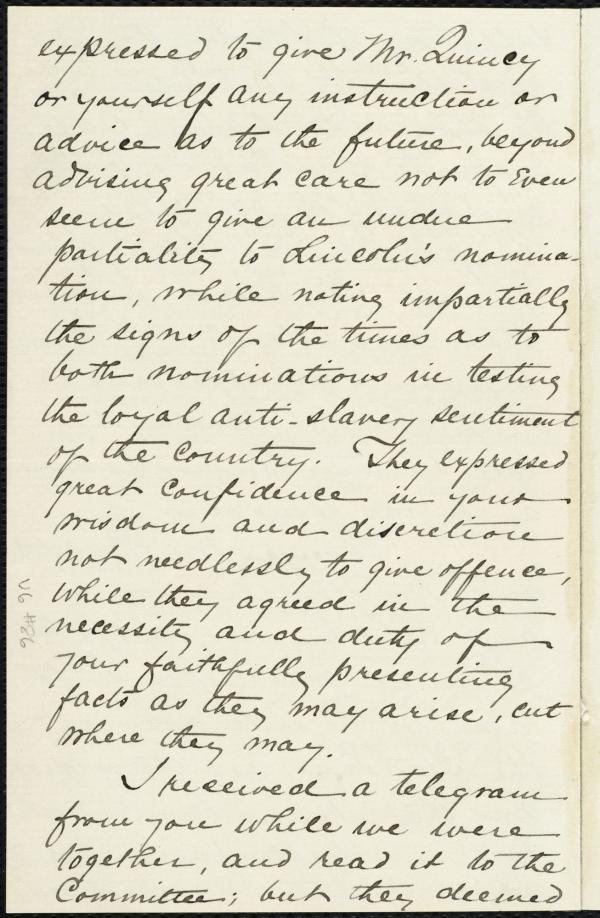 expressed to give Mr. Quincy
or yourself any instruction or
advice as to the future, beyond
advising great care not to even
seem to give an undue
partiality to Lincoln's nomina-
tion, while noting impartially
the signs of the times as to
both nominations in testing
the loyal anti-slavery sentiment
of the country. They expressed
great confidence in your
wisdom and discretion
not needlessly to give offence,
while they agreed in the
necessity and duty of
your faithfully presenting
facts as they may arise, cut
where they may.
I received a telegram
from you while we were
together, and read it to the
Committee; but they deemed